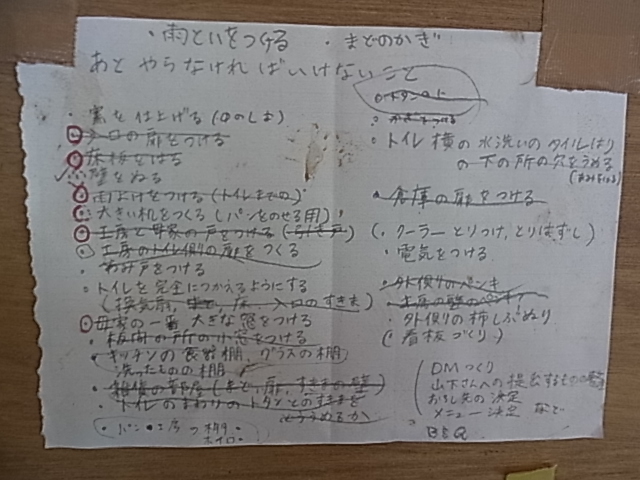 ・雨といをつける ・まどのかぎ
あと やらなければいけないこと
・窯を仕上げる
入口の扉をつける
床板をはる
壁をぬる
雨よけをつける(トイレまでの)
大きい机をつくる(パンをのせる用)
工房と母家の戸をつける(引き戸)
工房のトイレ側の扉をつくる
・あみ戸をつける
・トイレを完全につかえるようにする
(換気扇、床、入口のすきま)
母家の一番大きな窓をつける
・板間の所の小窓をつける
・キッチンの食器棚、グラスの棚
洗ったものの棚
・雑貨の部屋(まど、扉、すきまの壁)
・トイレのまわりのトタンとのすきまを
どううめるか
・パン工房の棚
ホイロ・
・トイレ横の水洗いのタイルはり
の下の所の穴をうめる
・倉庫の扉をつける
(・クーラーとりつけ、とりはずし)
・電気をつける
・外側のペンキ
・工房の壁のペンキ
・外側の柿しぶぬり
(看板づくり)
DMつくり
山下さんへの提出するもの
おろし先の決定
メニュー決定 など